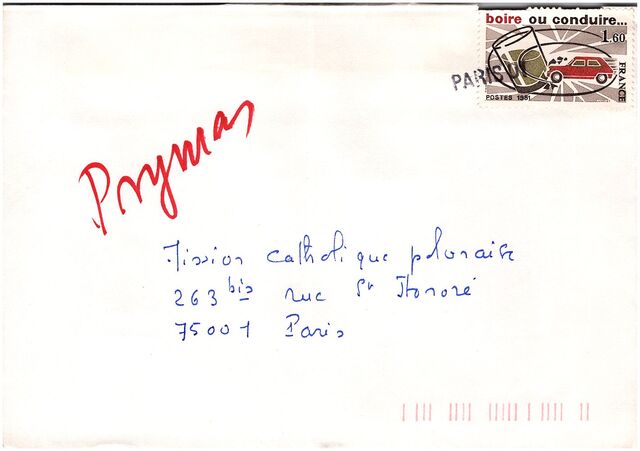 boire ou conduire...
1,60
FRANCE
POSTES 1981
PARIS
Prymas
Mission catholique polonaise
263 bis rue St Honoré
75001 Paris